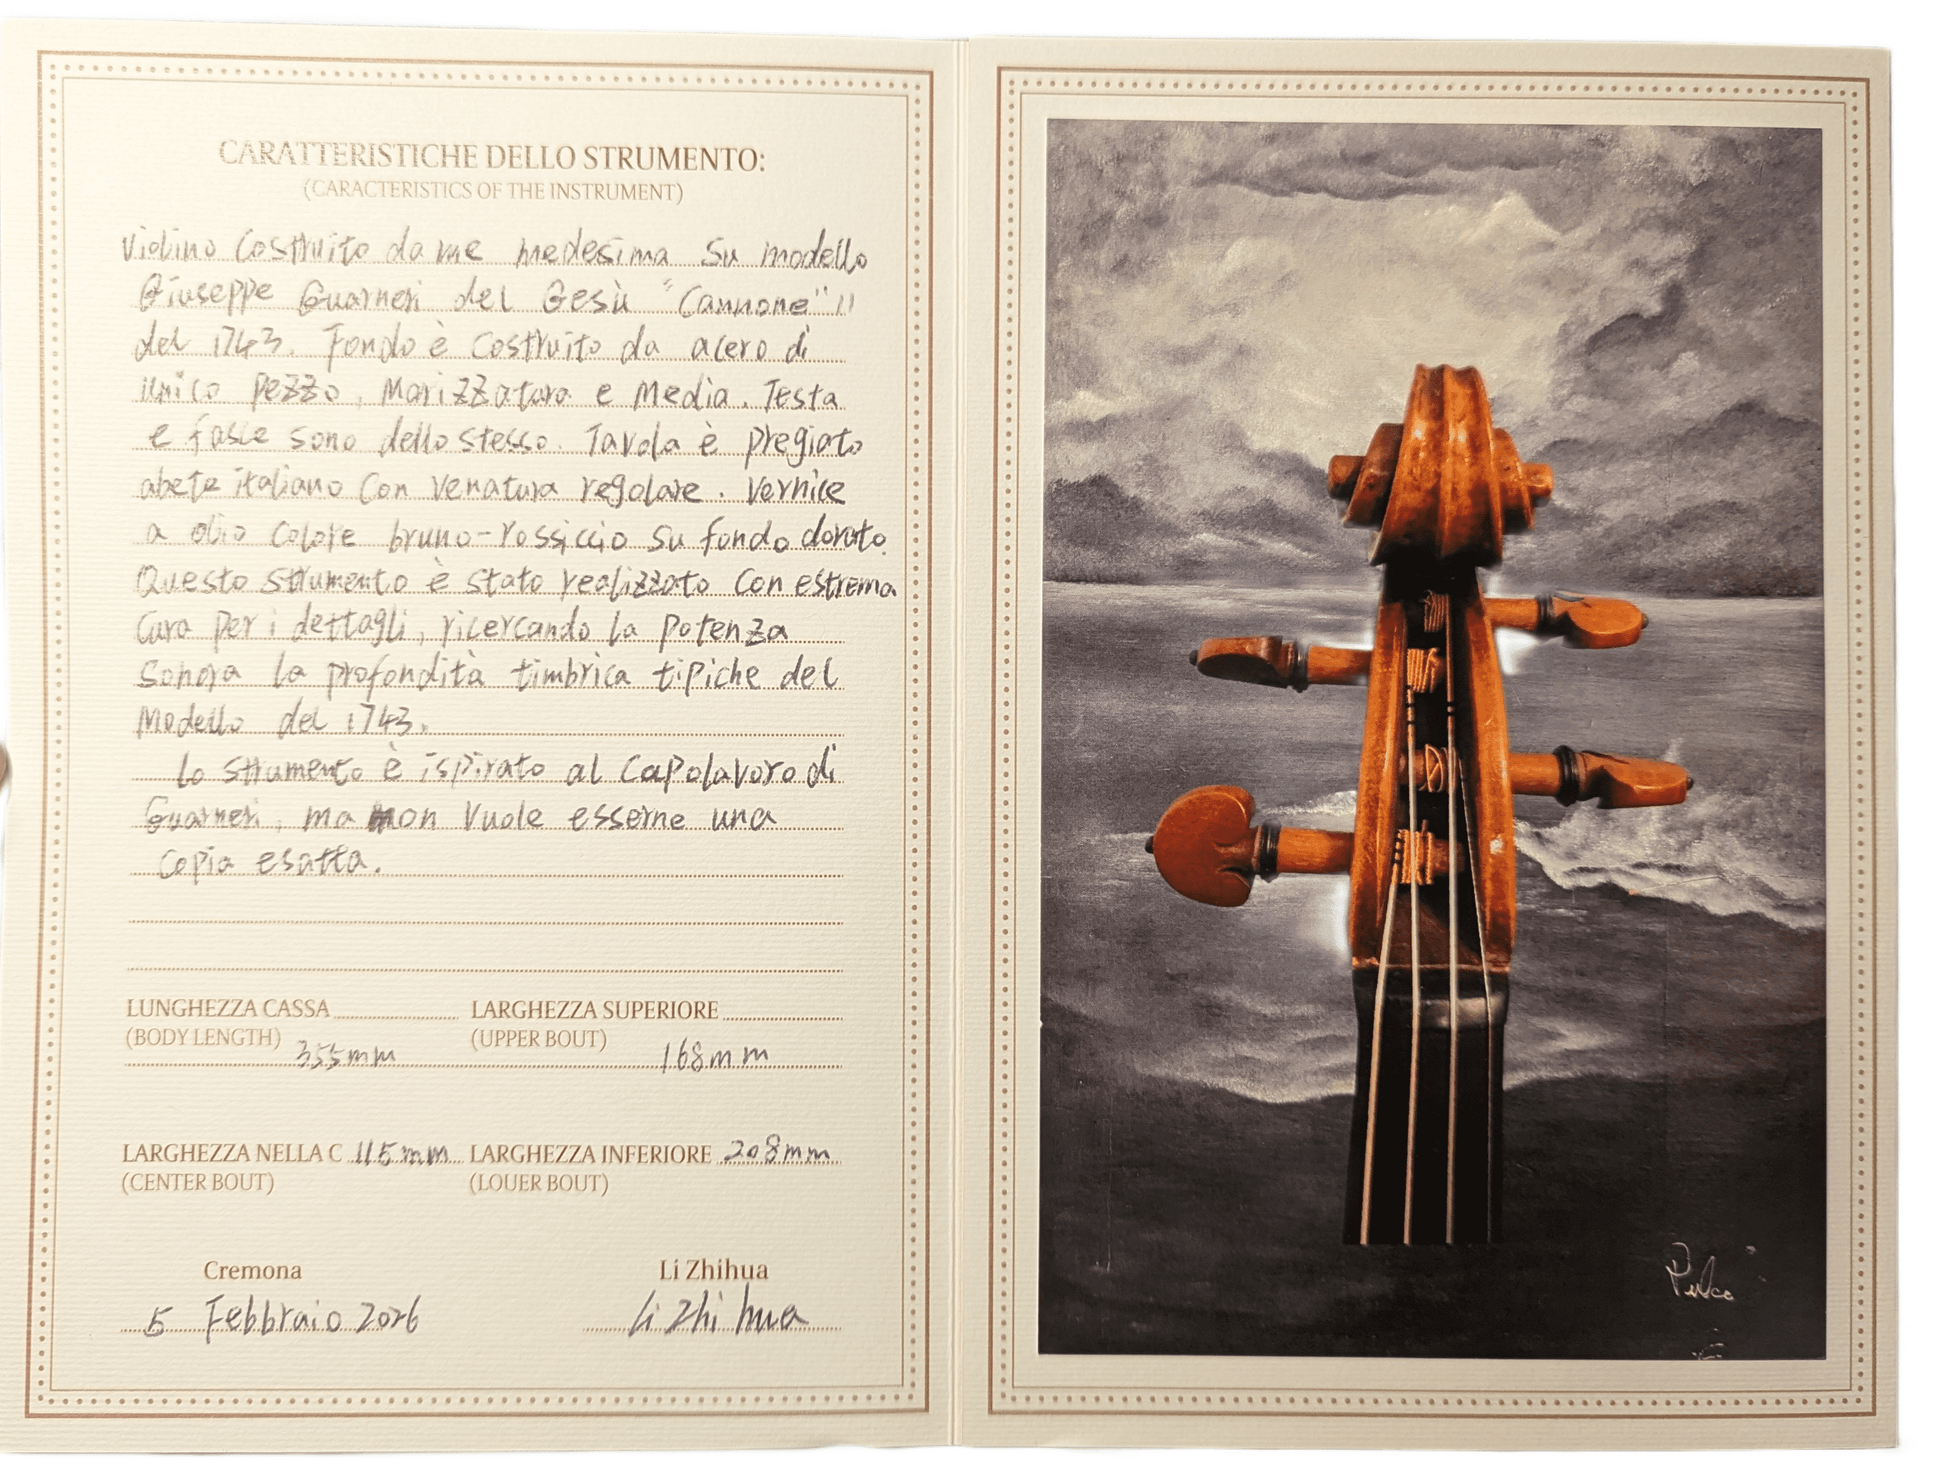 CARATTERISTICHE DELLO STRUMENTO:
(CARACTERISTICS OF THE INSTRUMENT)
Violino Costruito da me medesima Su modello
Giuseppe Guarneri del Gesù "Cannone" 11
del 1743. Fondo è Costruito da acero di
unico Pezzo, Marizzatura e Media. Testa
e fasce sono dello stesso. Tavola è pregiato
abete italiano Con Venatura regolare. Vernice
a olio Colore bruno-rossiccio Su fondo dorato.
Questo strumento è stato realizzato Con estrema
Cura Per i dettagli, ricercando la Potenza
Sonora la profondità timbrica tipiche del
Modello del 1743.
Lo strumento è ispirato al Capolavoro di
Guarneri, ma non Vuole esserne una
Copia esatta.
LUNGHEZZA CASSA LARGHEZZA SUPERIORE
(BODY LENGTH) (UPPER BOUT)
355mm 168mm
LARGHEZZA NELLA C 115mm LARGHEZZA INFERIORE 208mm
(CENTER BOUT) (LOUER BOUT)
Cremona Li Zhihua
5 Febbraio 2026 Li Zhi hua